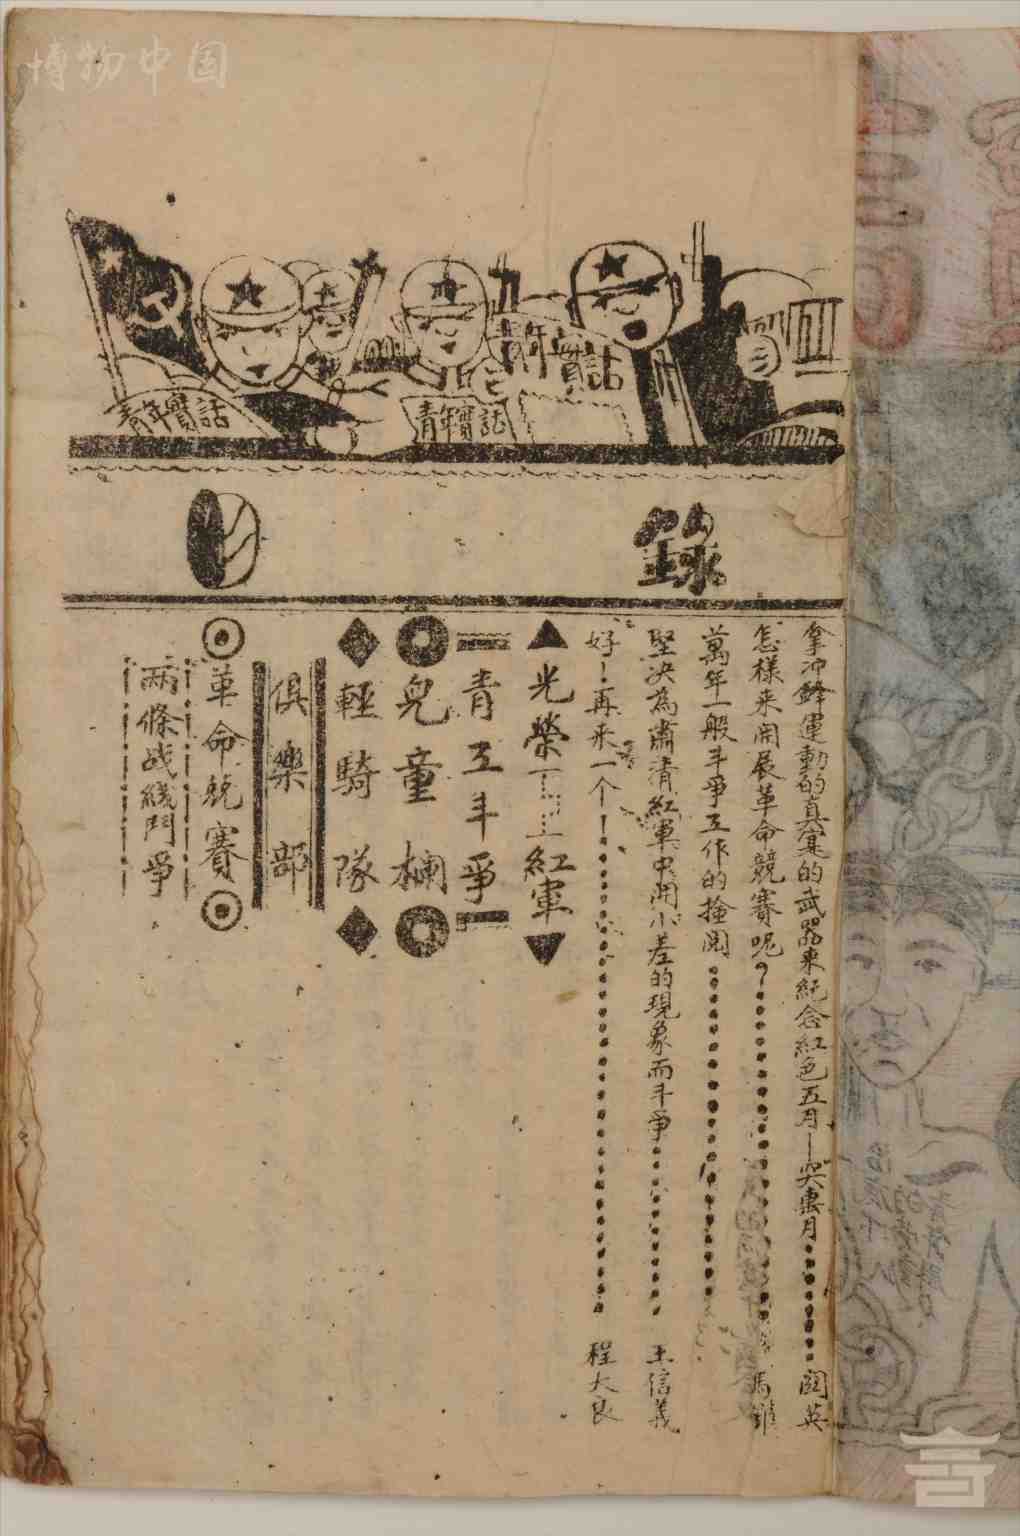 博物中国
青年實話
青年實話
青年實話
目錄
拿冲鋒運動的真实的武器來紀念紅色五月—突擊月 闊英
怎様来開展革命競賽呢？ 馮
萬年一般斗爭工作的撿閲
堅决為肅清紅軍中開小差的現象而斗爭 王信義
好！再来一个！ 程大良
光榮 紅軍
青工斗爭
兒童欄
輕騎隊
俱樂部
革命競賽
兩條战綫鬥爭